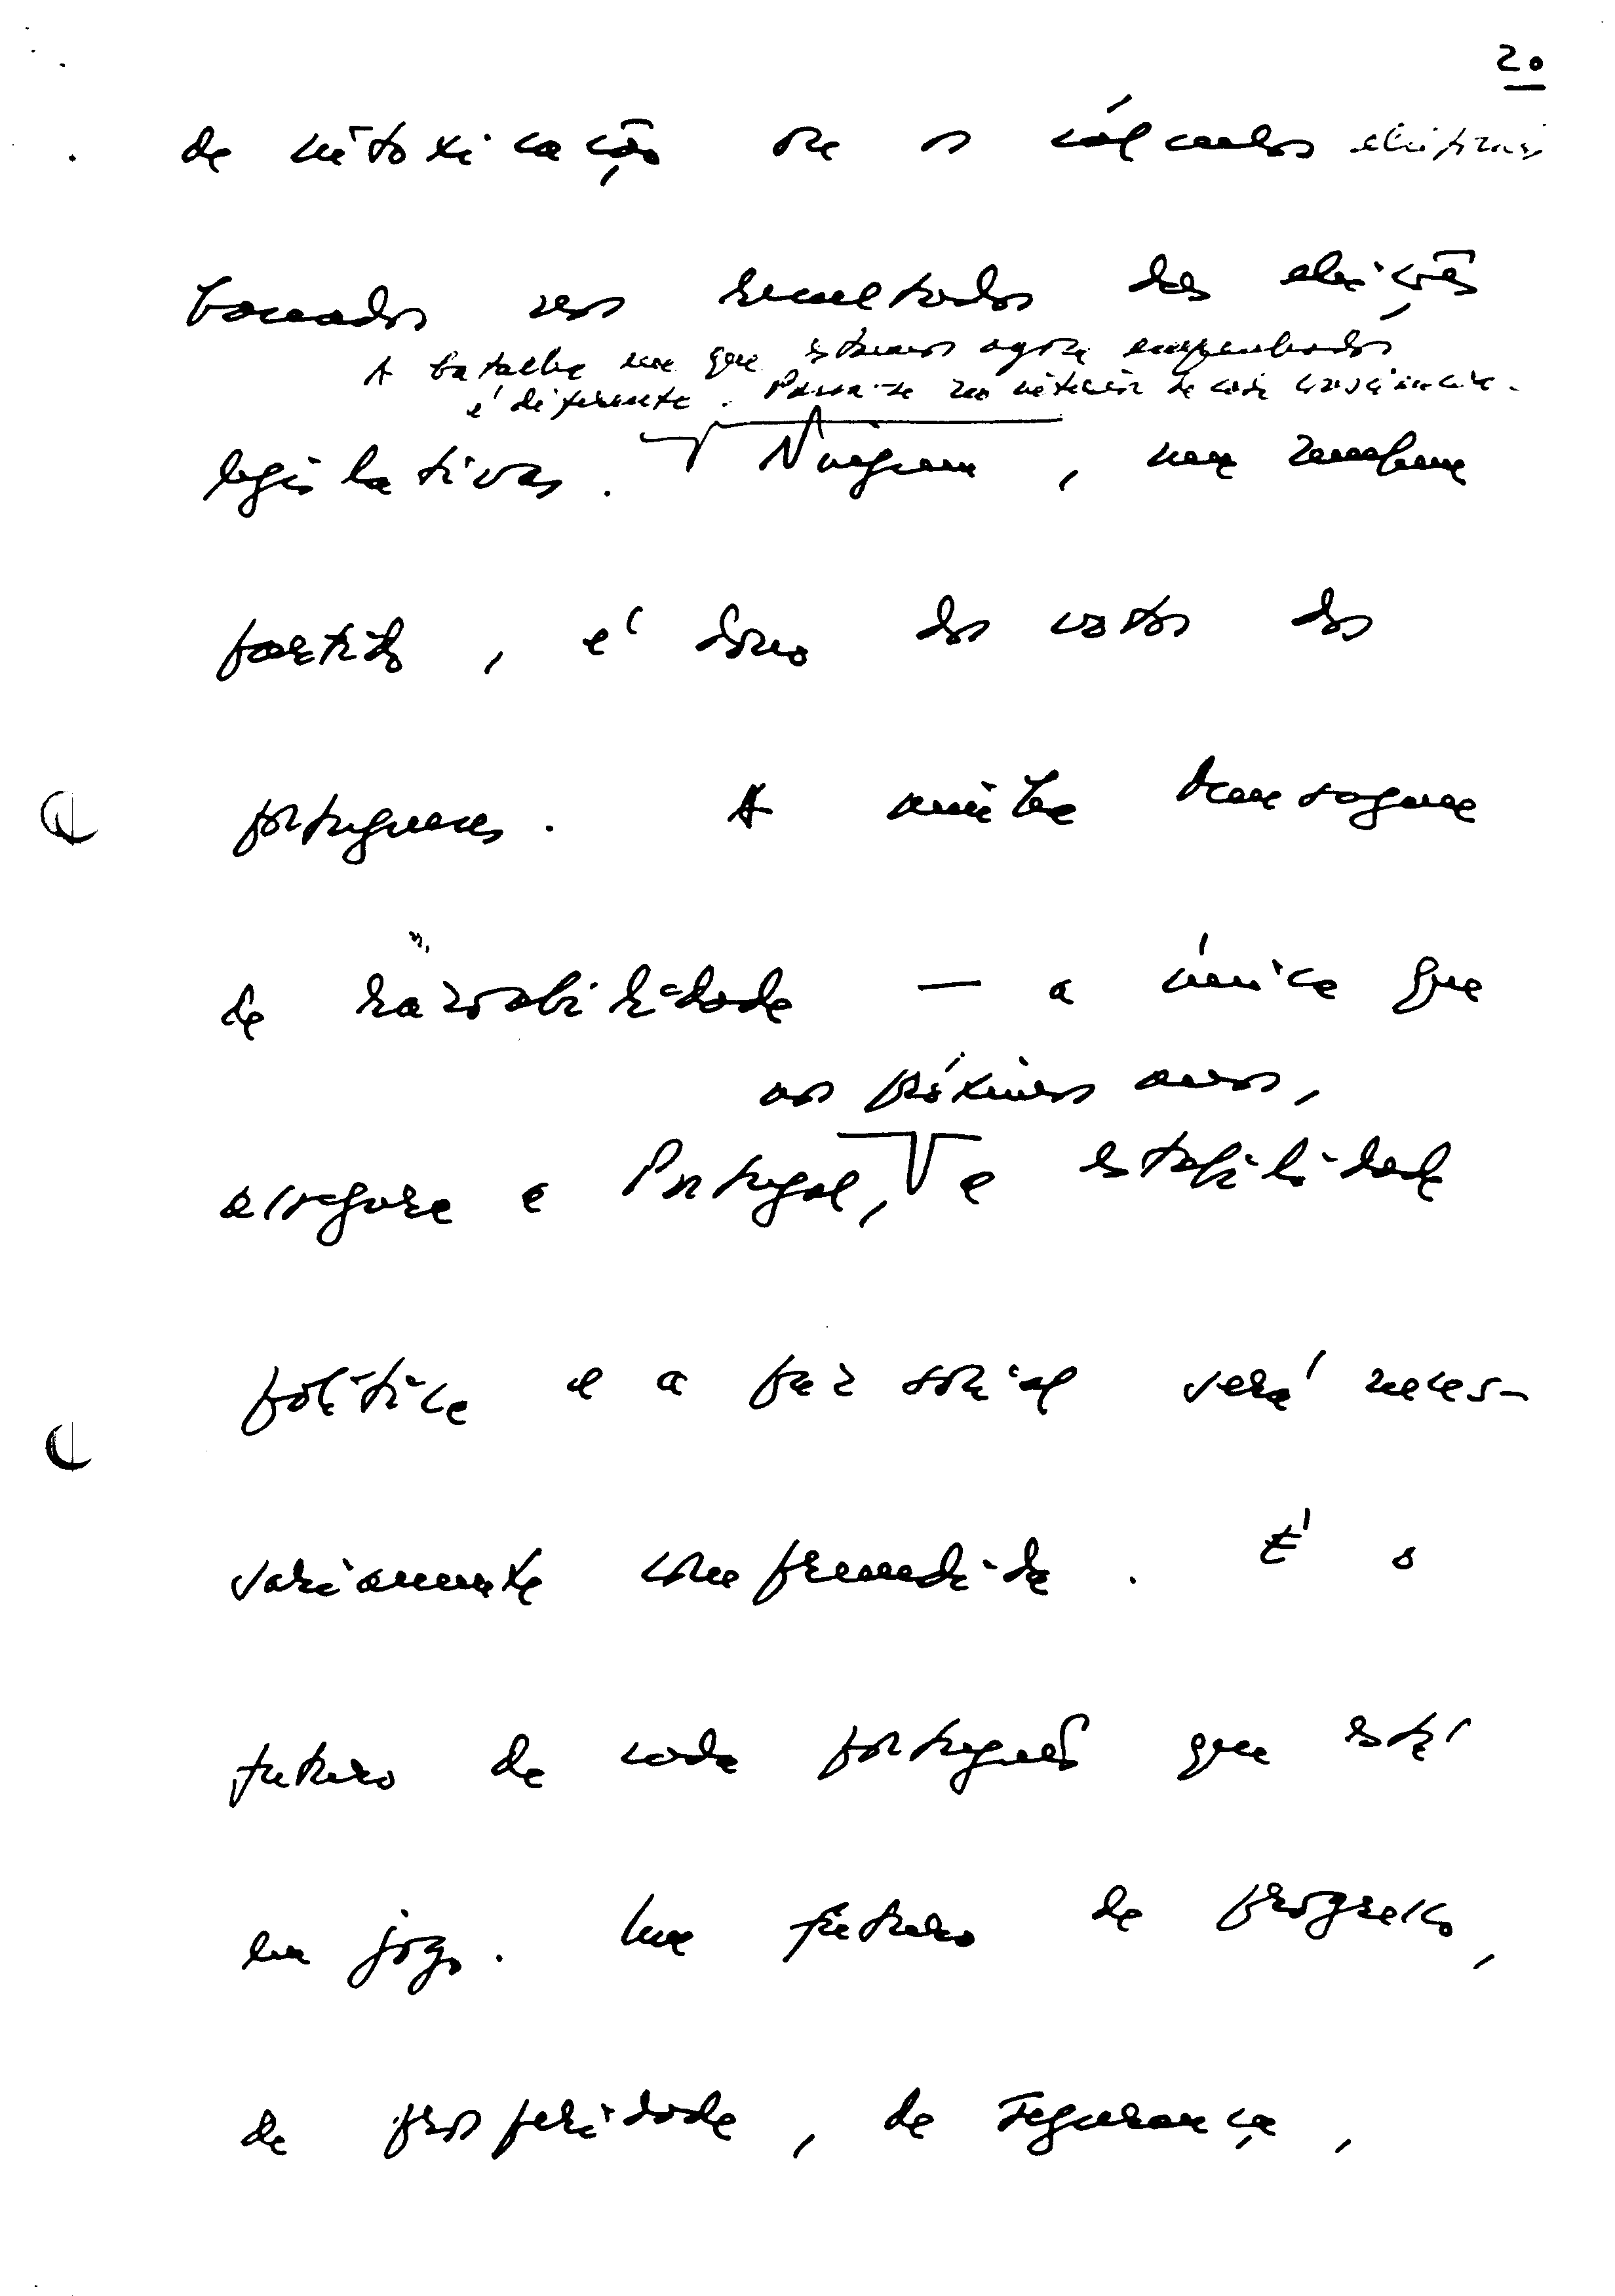 20
de intoxicação ou os cálculos eleitorais
baseados nos resultados das eleições
A batalha em que estamos agora empenhados
é diferente. Passa-se no interior de cada consciência.
legislativas. Ninguém, nem nenhum
partido, é dono dos votos dos
portugueses. A minha mensagem
de razoabilidade — a única que
nos próximos anos,
assegura a Portugal, a estabilidade
política e a paz social será neces-
sariamente compreendida. É o
futuro de cada português que está
em jogo. Um futuro de progresso,
de prosperidade, de segurança,